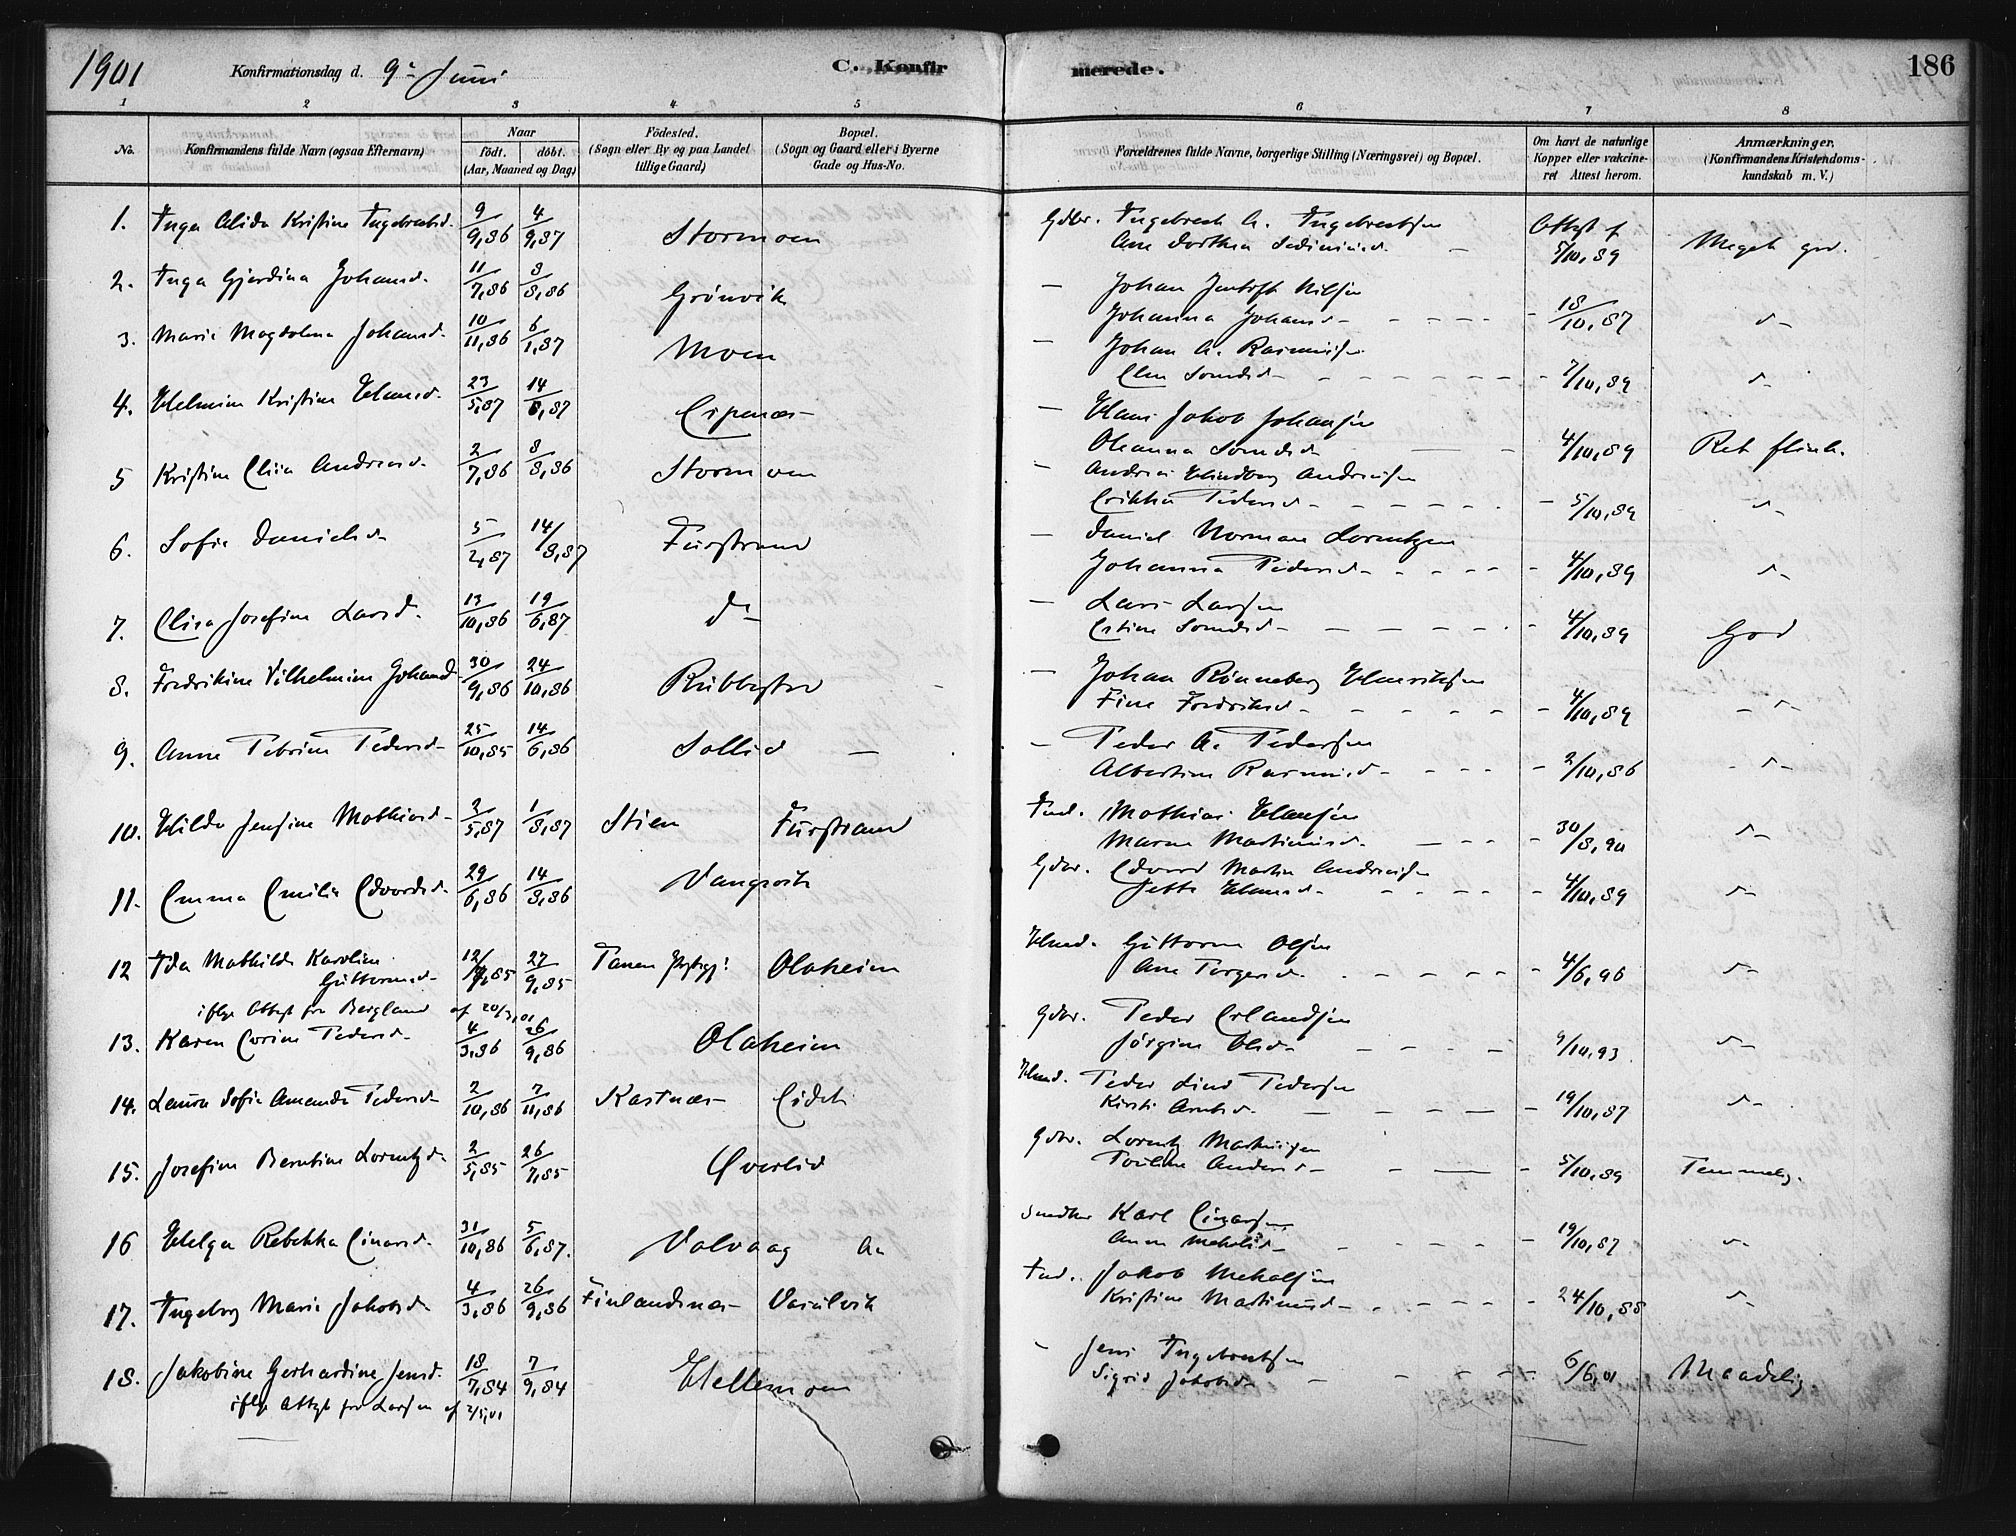 1901 Konfirmationsdag d. 9de Juni C. Konfirmerede. 186
1 2 3 4 5 6 7 8
No. Konfirmandens fulde Navn (ogsaa Efternavn) Naar født. døbt. (Aar, Maaned og Dag) Fødested. (Sogn eller By og paa Landet tillige Gaard) Bopæl. (Sogn og Gaard eller i Byerne Gade og Hus-No. Forældrenes fulde Navne, borgerlige Stilling (Næringsvei) og Bopæl. Om havt de naturlige Kopper eller vakcineret Attest herom. Anmærkninger. (Konfirmandens Kristendomskundskab m. V.)
1. Inga Alida Kristine Ingebretsd. 9/9,86 4/9,87 Stormoen Gdbr. Ingebret A. Ingebretsen
Ane Dorthea Sediniusd. Attest f 5/10,89 Meget god.
2. Inga Gjerdina Johansd. 11/7,86 8/8,86 Grønvik – Johan Jentoft Nilsen
Johanna Johansd. 18/10,87 do
3. Marie Magdalena Johansd. 10/11,86 6/1,87 Moen – Johan A. Rasmussen
Elen Simonsd. 7/10,89 do
4. Helmine Kristine Hansd. 23/5,87 14/8,87 Espenæs – Hans Jakob Johansen
Oleanna Simonsd. 4/10,89 Ret flink.
5 Kristine Elisa Andreasd. 2/7,86 8/8,86 Stormoen – Andreas Hindberg Andreassen
Erikka Pedersd. 5/10,89 do
6. Sofie Danielsd. 5/2,87 14/8,87 Furstrand – Daniel Norman Lorentzen
Johanna Pedersd. 4/10,89 do
7. Elisa Josefine Larsd. 13/10,86 19/6,87 do – Lars Larsen
Estine Simonsd. 4/10,89 God
8. Fredrikine Vilhelmine Johansd. 30/9,86 24/10,86 Rubbestad – Johan Rønneberg Henriksen
Fine Fredriksd. 4/10,89 do
9. Anne Petrine Pedersd. 25/10,85 14/6,86 Sollid – – Peder A. Pedersen
Albertine Rasmusd. 2/10,86 do
10. Hilda Jensine Mathiasd. 3/5,87 1/8,87 Stien Furstrand Ind. Mathias Hansen
Maren Martinusd. 30/8,90 do
11. Emma Emilie Edvardsd. 29/6,86 14/8,86 Vangsvik Gdbr. Edvard Martin Andreassen
Jette Hansd. 4/10,89 do
12 Ida Mathilde Karoline Guttormsd. 27/9,85 Tanen Olaheim Hmd. Guttorm Olsen
Ane Torgersd. 4/6,96 do
iflge Attest fra Bergland af 20/3,01
13. Karen Corine Pedersd. 4/3,86 26/9,86 Olaheim Gdbr. Peder Erlandsen
Jørgine Olsd. 9/10,93 do
14. Laura Sofie Amanda Pedersd. 2/10,86 7/11,86 Kastnæs Eidet Hmd. Peder Lind Pedersen
Kirsti Arntsd. 19/10,87 do
15. Josefine Berntine Lorentzd. 2/5,85 26/7,85 Øverlid Gdbr. Lorentz Martinssen
Pauline Andersd. 5/10,89 Temmelig.
16 Helga Rebekka Einarsd. 31/10,86 5/6,87. Valvaag Snedker Karl Einarsen
Anne Mekalsd. 19/10,87 do
17. Ingeborg Marie Jakobsd. 4/3,86 26/9,86 Finlandsnæs Vasulvik Ind. Jakob Mekalsen
Kristine Martinusd. 24/10,88 do
18. Jakobine Gerhardine Jensd. 18/7,84 7/9,84 Hellemoen – Jens Ingebretsen
Sigrid Jakobsd. 6/6,01 Maadelig
iflge Attest fra Larsen af 2/5,01